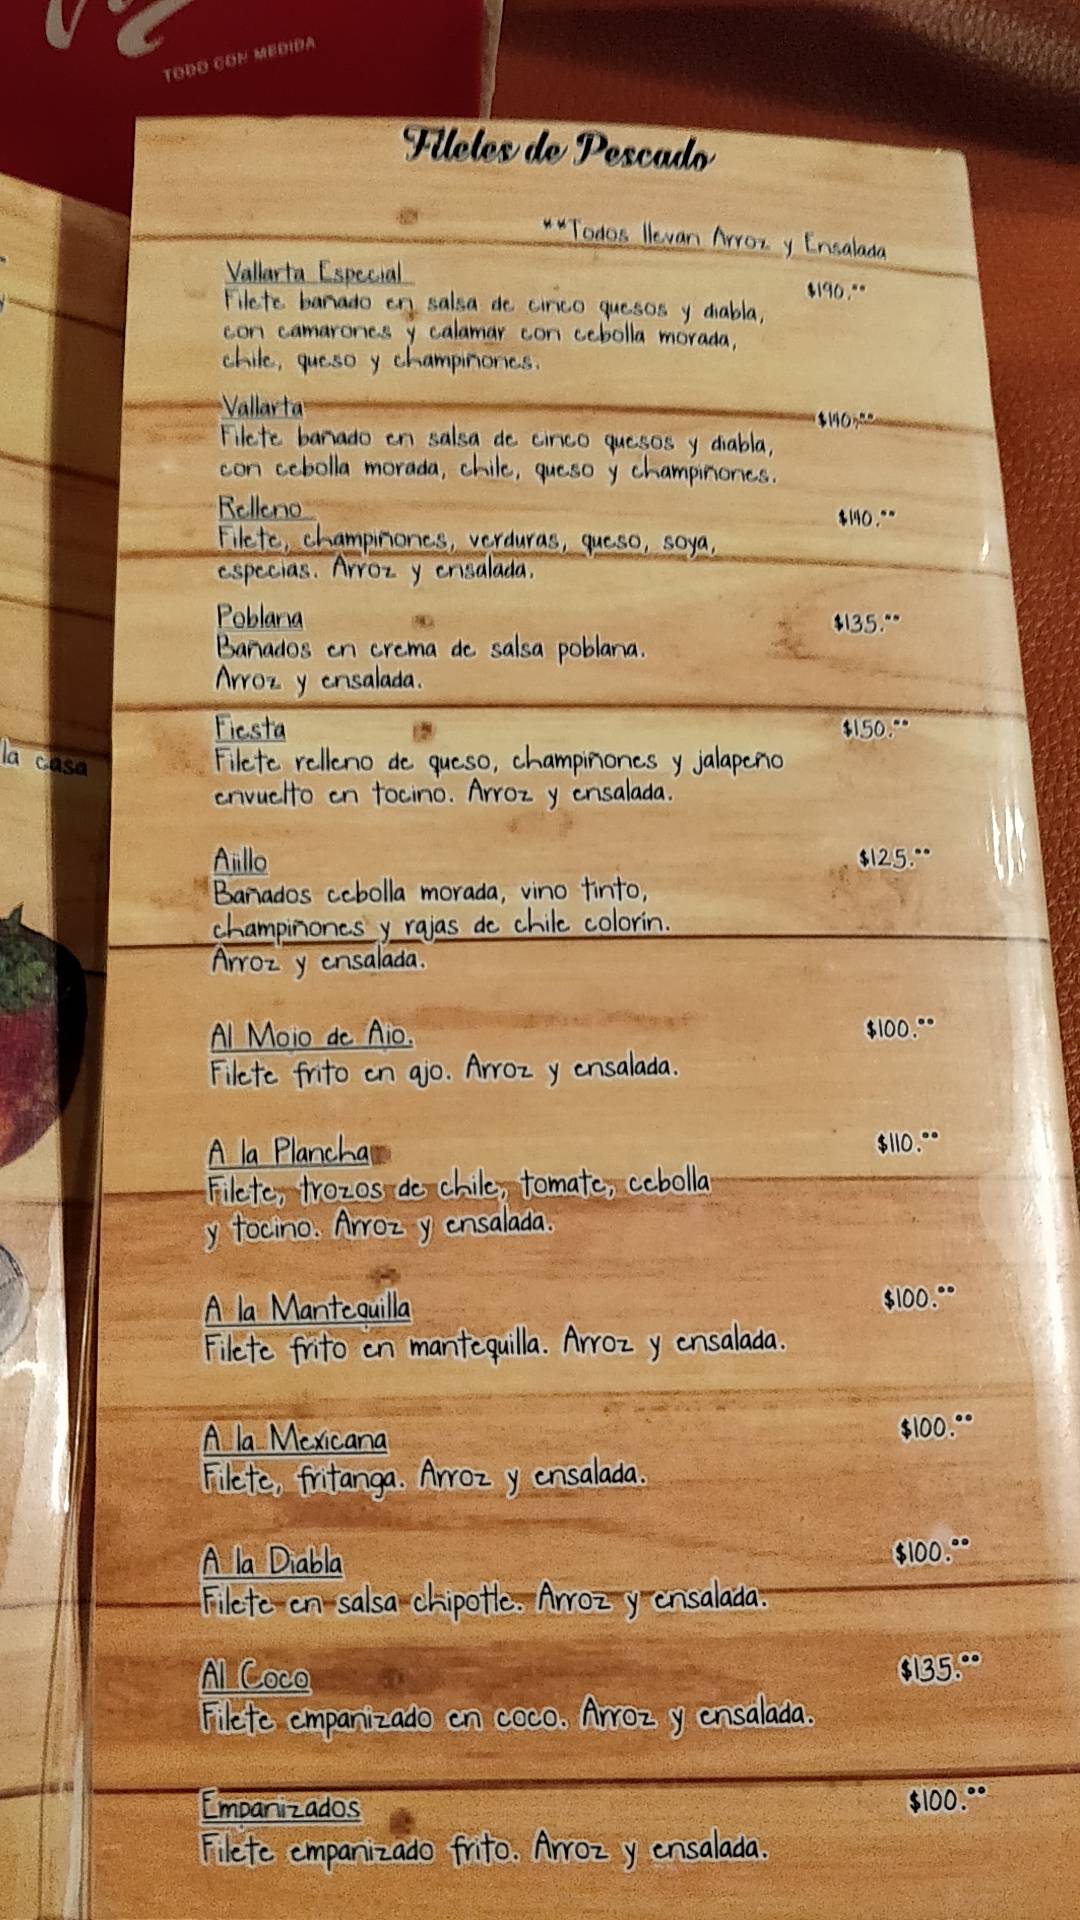 TODO CON MEDIDA
Filetes de Pescado
**Todos llevan Arroz y Ensalada
Vallarta Especial $190.00
Filete bañado en salsa de cinco quesos y diabla,
con camarones y calamar con cebolla morada,
chile, queso y champiñones.
Vallarta
Filete bañado en salsa de cinco quesos y diabla,
con cebolla morada, chile, queso y champiñones.
Relleno
Filete, champiñones, verduras, queso, soya,
especias. Arroz y ensalada.
Poblana $135.00
Bañados en crema de salsa poblana.
Arroz y ensalada.
Fiesta $150.00
Filete relleno de queso, champiñones y jalapeño
envuelto en tocino. Arroz y ensalada.
la casa
Ajillo $125.00
Bañados cebolla morada, vino tinto,
champiñones y rajas de chile colorín.
Arroz y ensalada.
Al Mojo de Ajo. $100.00
Filete frito en ajo. Arroz y ensalada.
A la Plancha $110.00
Filete, trozos de chile, tomate, cebolla
y tocino. Arroz y ensalada.
A la Mantequilla $100.00
Filete frito en mantequilla. Arroz y ensalada.
A la Mexicana $100.00
Filete, fritanga. Arroz y ensalada.
A la Diabla $100.00
Filete en salsa chipotle. Arroz y ensalada.
Al Coco $135.00
Filete empanizado en coco. Arroz y ensalada.
Empanizados $100.00
Filete empanizado frito. Arroz y ensalada.